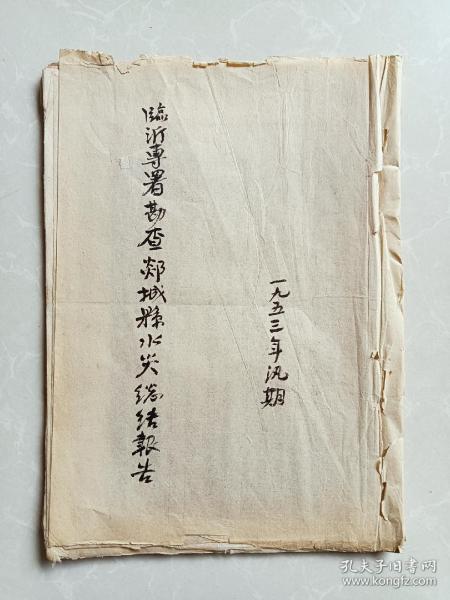 一九五三年汛期
臨沂專署勘查郯城縣水災總结報告
孔夫子旧书网
www.kongfz.com